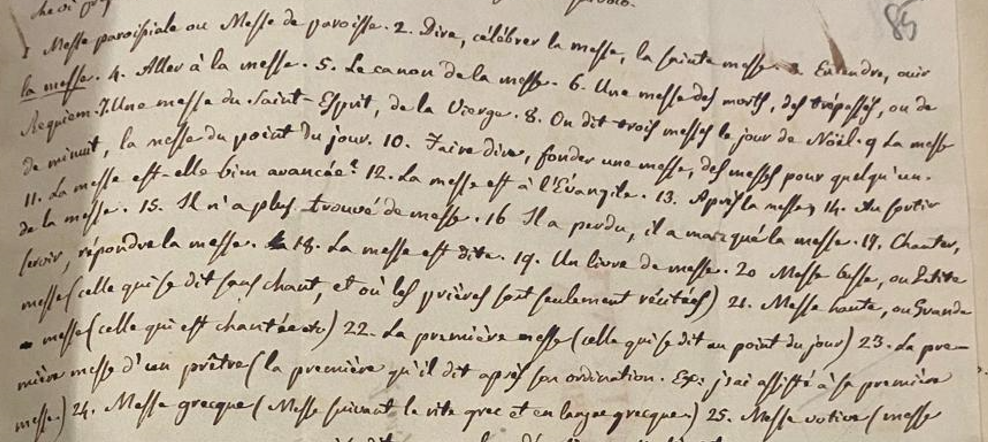 85
1 Messe paroissiale ou Messe de paroisse. 2. Dire, célébrer la messe, la sainte messe. 3. Entendre, ouir
la messe. 4. Aller à la messe. 5. Le canon de la messe. 6. Une messe des morts, des trépassés, ou de
Requiem. 7. Une messe du Saint-Esprit, de la Vierge. 8. On dit trois messes le jour de Noël. 9 La messe
de minuit, la messe du point du jour. 10. Faire dire, fonder une messe, des messes pour quelqu'un.
11. La messe est-elle bien avancée? 12. La messe est à l'Évangile. 13. Après la messe 14. Au sortir
de la messe. 15. Il n'a plus trouvé de messe. 16 Il a perdu, il a manqué la messe. 17. Chanter,
servir, répondre la messe. 18. La messe est dite. 19. Un livre de messe. 20 Messe basse, ou Petite
messe (celle qui se dit sans chant, et où les prières sont seulement récitées) 21. Messe haute, ou Grande
messe (celle qui est chantée etc) 22. La première messe (celle qui se dit au point du jour) 23. La pre-
mière messe d'un prêtre (la première qu'il dit après son ordination. Ex: j'ai assisté à sa première
messe.) 24. Messe grecque (Messe suivant le rite grec et en langue grecque) 25. Messe votive (messe